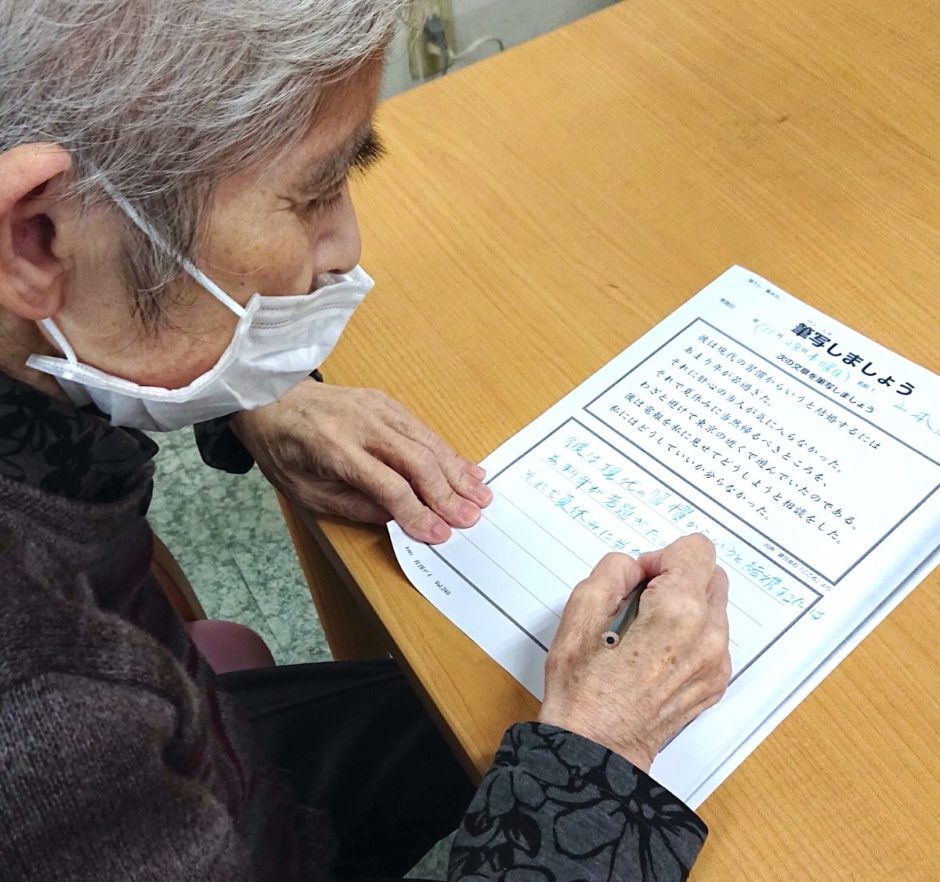 筆写しましょう
次の文章を筆写しましょう
彼は現代の習慣からいうと結婚するには
あまり年が若過ぎた。
それに肝心の当人が気に入らなかった。
それで夏休みに当然帰るべきところを、
わざと避けて東京の近くで遊んでいたのである。
彼は電報を私に見せてどうしようと相談をした。
私にはどうしていいか分らなかった。
彼は現代の習慣からいうと結婚するには
あまり年が若過ぎた。
それで夏休みに当